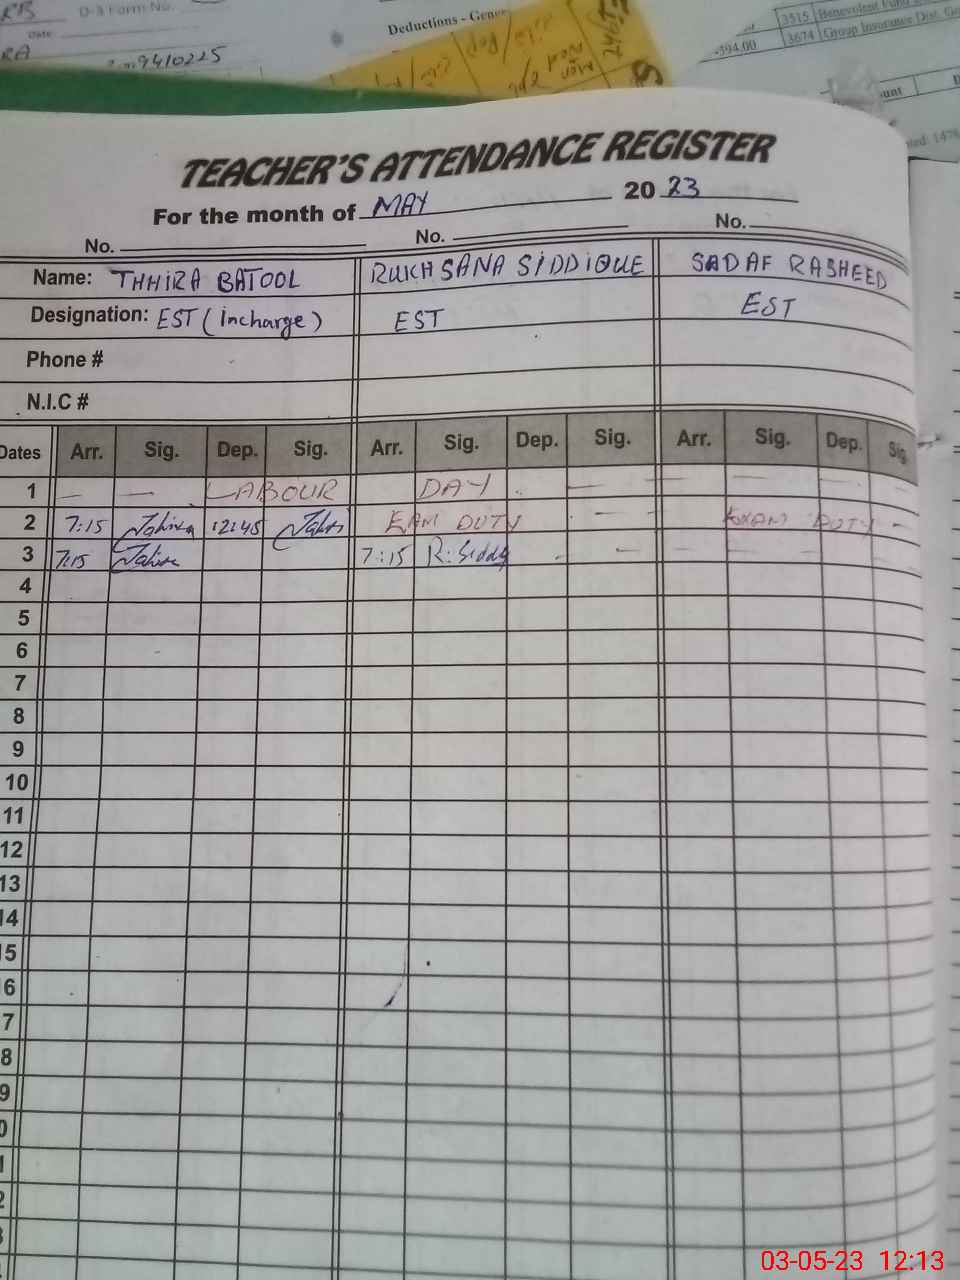 RB D-3 Form No.
Date
RA
Deductions - Gener
3515 Benevolent Fund
-394.00 3674 Group Insurance Dist. Go
TEACHER'S ATTENDANCE REGISTER
For the month of MAY 20 23
No. No. No.
Name: THHIRA BATOOL RUKHSANA SIDDIQUE SADAF RASHEED
Designation: EST (incharge) EST EST
Phone #
N.I.C #
Dates Arr. Sig. Dep. Sig. Arr. Sig. Dep. Sig. Arr. Sig. Dep. Sig
1 — — LABOUR DAY — — — — —
2 7:15 Tahira 12:45 EAM DUTY - - - EXAM DUTY -
3 7:15 Tahira 7:15 R. Siddq - - - - - -
4
5
6
7
8
9
10
11
12
13
14
15
6
7
8
9
0
1
2
3
03-05-23 12:13